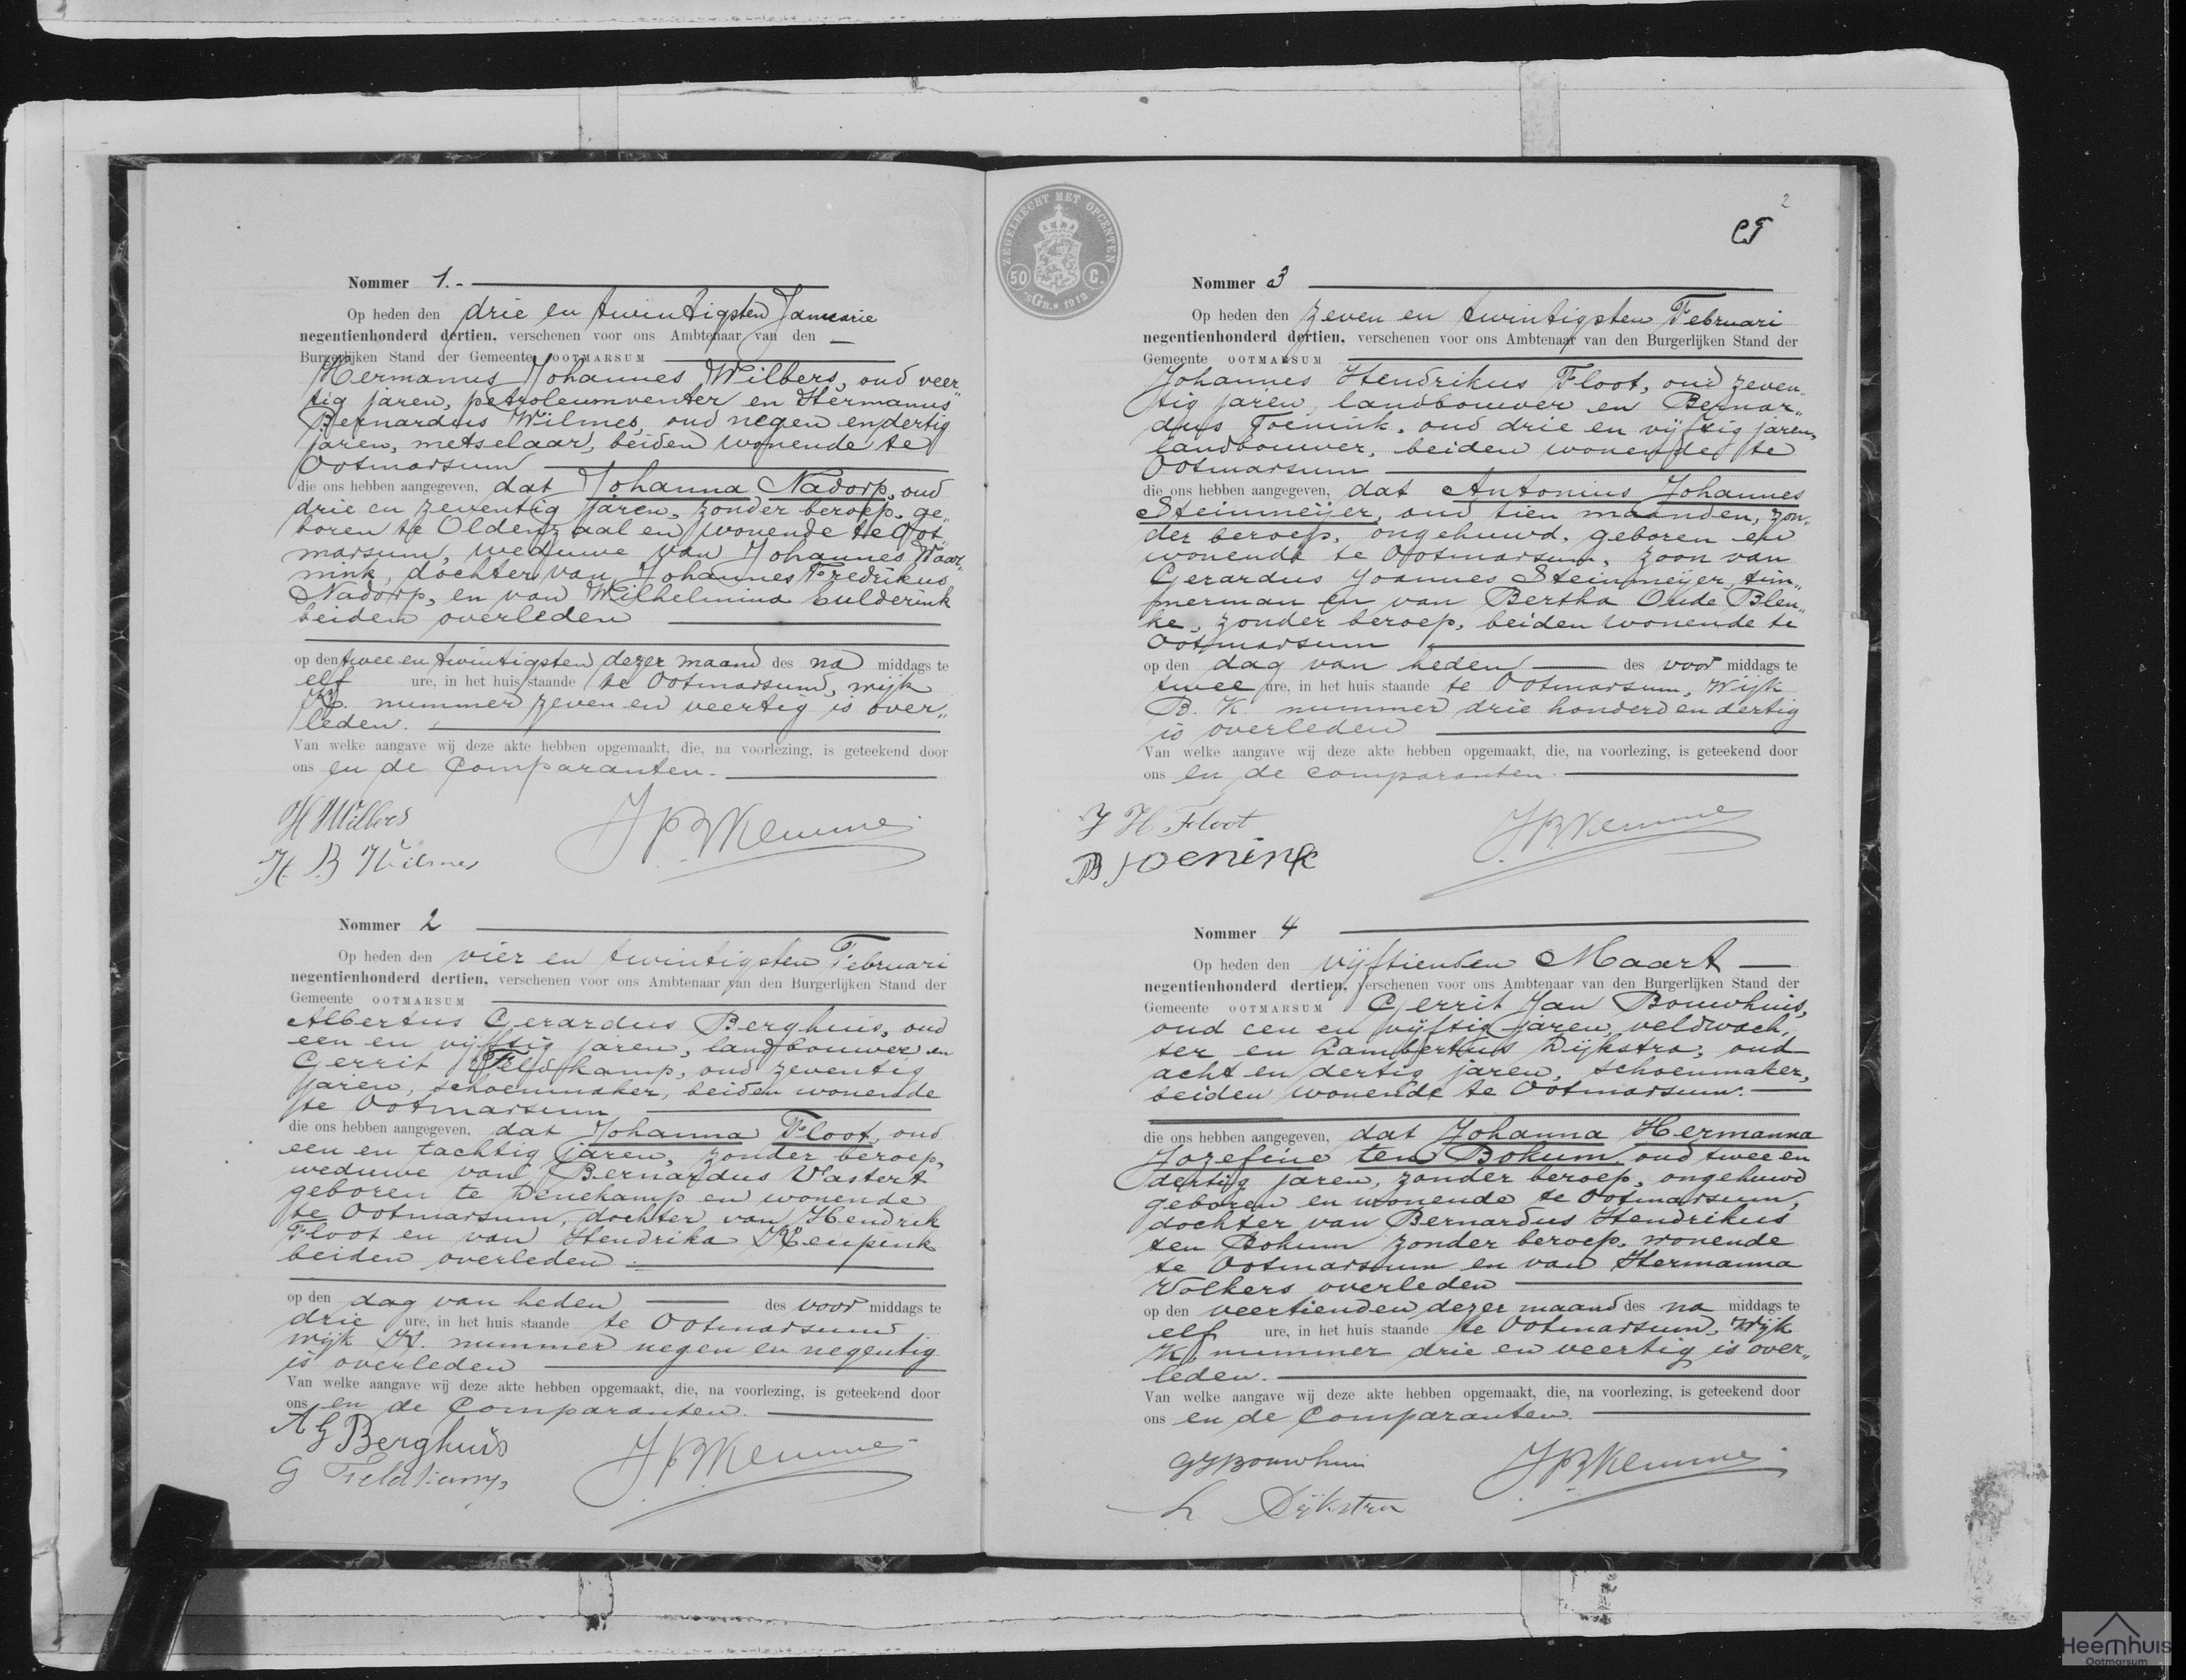 Nommer 1.-
Op heden den drie en twintigsten Januarie
negentienhonderd dertien, verschenen voor ons Ambtenaar van den
Burgerlijken Stand der Gemeente OOTMARSUM
Hermanus Johannes Wilbers, oud veer„
tig jaren, petroleumventer en Hermanus
Bernardus Wilmes, oud negen en dertig
jaren, metselaar, beiden wonende te
Ootmarsum
die ons hebben aangegeven, dat Johanna Nadorp, oud
drie en zeventig jaren, zonder beroep, ge„
boren te Oldenzaal en wonende te Oot
marsum, weduwe van Johannes Waar„
nink, dochter van Johannes Fredrikus
Nadorp, en van Wilhelmina Culderink
beiden overleden
op den twee en twintigsten dezer maand des na middags te
elf ure, in het huis staande te Ootmarsum, wijk
K. nummer zeven en veertig is over„
leden.
Van welke aangave wij deze akte hebben opgemaakt, die, na voorlezing, is geteekend door
ons en de Comparanten.
H Wilbers
H. B Wilmes
Nommer 2
Op heden den vier en twintigsten Februari
negentienhonderd dertien, verschenen voor ons Ambtenaar van den Burgerlijken Stand der
Gemeente OOTMARSUM
Albertus Gerardus Berghuis, oud
een en vijftig jaren, landbouwer en
Gerrit Feldkamp, oud zeventig
jaren, schoenmaker, beiden wonende
te Ootmarsum
die ons hebben aangegeven, dat Johanna Floot, oud
een en tachtig jaren, zonder beroep,
weduwe van Bernardus Vastert
geboren te Denekamp en wonende
te Ootmarsum, dochter van Hendrik
Floot en van Hendrika Reupink
beiden overleden
op den dag van heden des voor middags te
drie ure, in het huis staande te Ootmarsum
wijk K. nummer negen en negentig
is overleden
Van welke aangave wij deze akte hebben opgemaakt, die, na voorlezing, is geteekend door
ons en de Comparanten.
A G Berghuis
G Feldkamp
ZEGELRECHT MET OPCENTEN
50 C.
'sGR. 1912
2
Nommer 3
Op heden den zeven en twintigsten Februari
negentienhonderd dertien, verschenen voor ons Ambtenaar van den Burgerlijken Stand der
Gemeente OOTMARSUM
Johannes Hendrikus Floot, oud zeven„
tig jaren, landbouwer en Bernar„
dus Toenink, oud drie en vijftig jaren,
landbouwer, beiden wonende te
Ootmarsum
die ons hebben aangegeven, dat Antonius Johannes
Steinmeijer, oud tien maanden, zon„
der beroep, ongehuwd, geboren en
wonende te Ootmarsum, zoon van
Gerardus Joannes Steinmeijer, tim„
merman en van Bertha Oude Blen„
ke, zonder beroep, beiden wonende te
Ootmarsum
op den dag van heden des voor middags te
twee ure, in het huis staande te Ootmarsum, Wijk
B. K. nummer drie honderd en dertig
is overleden
Van welke aangave wij deze akte hebben opgemaakt, die, na voorlezing, is geteekend door
ons en de comparanten.
J H Floot
B Toenink
Nommer 4
Op heden den vijftienden Maart
negentienhonderd dertien, verschenen voor ons Ambtenaar van den Burgerlijken Stand der
Gemeente OOTMARSUM Gerrit Jan Bouwhuis,
oud een en vijftig jaren, veldwach„
ter en Lambertus Dijkstra, oud
acht en dertig jaren, schoenmaker,
beiden wonende te Ootmarsum.
die ons hebben aangegeven, dat Johanna Hermanna
Jozefine ten Bokum oud twee en
dertig jaren, zonder beroep, ongehuwd
geboren en wonende te Ootmarsum,
dochter van Bernardus Hendrikus
ten Bokum zonder beroep, wonende
te Ootmarsum en van Hermanna
Volkers overleden
op den veertienden dezer maand des na middags te
elf ure, in het huis staande te Ootmarsum, Wijk
K. nummer drie en veertig is over„
leden.
Van welke aangave wij deze akte hebben opgemaakt, die, na voorlezing, is geteekend door
ons en de Comparanten.
GJ Bouwhuis
L Dijkstra
Heemhuis
Ootmarsum